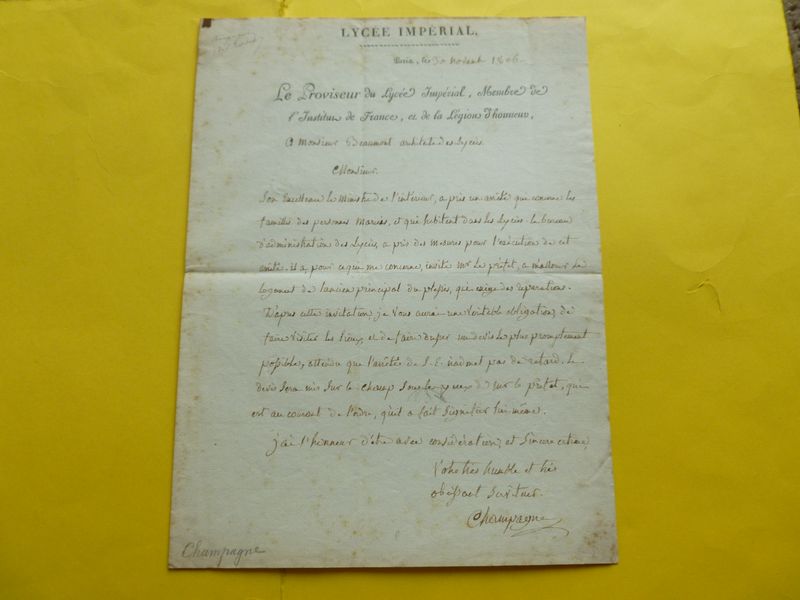 LYCÉE IMPÉRIAL,
Paris, le 30 novembre 1806.
Le Proviseur du Lycée Impérial, Membre de
l'Institut de France, et de la Légion d'honneur,
A Monsieur Beaumont architecte des Lycées.
Monsieur.
Son Excellence le Ministre de l'intérieur, a pris un arrêté que concerne les
familles des personnes Mariées, et qui habitent dans les Lycées. le bureau
d'administration des Lycées, a pris des mesures pour l'exécution de cet
arrêté. il a, pour ce qui me concerne, invité Mr Le préfet, a m'allouer le
logement de l'ancien principal du plessis, qui exige des reparations.
D'après cette invitation, je vous aurai une veritable obligation, de
faire visiter les lieux, et de faire dresser un devis le plus promptement
possible, attendu que l'arrêté de S. E. n'admet pas de retard. Le
devis sera mis sur le champ sous les yeux de Mr le préfet, qui
est au courant de l'ordre, qu'il a fait signifier lui-même.
j'ai l'honneur d'être avec consideration, et sincere estime,
Votre très humble et très
obéissant Serviteur.
Champagne
Champagne